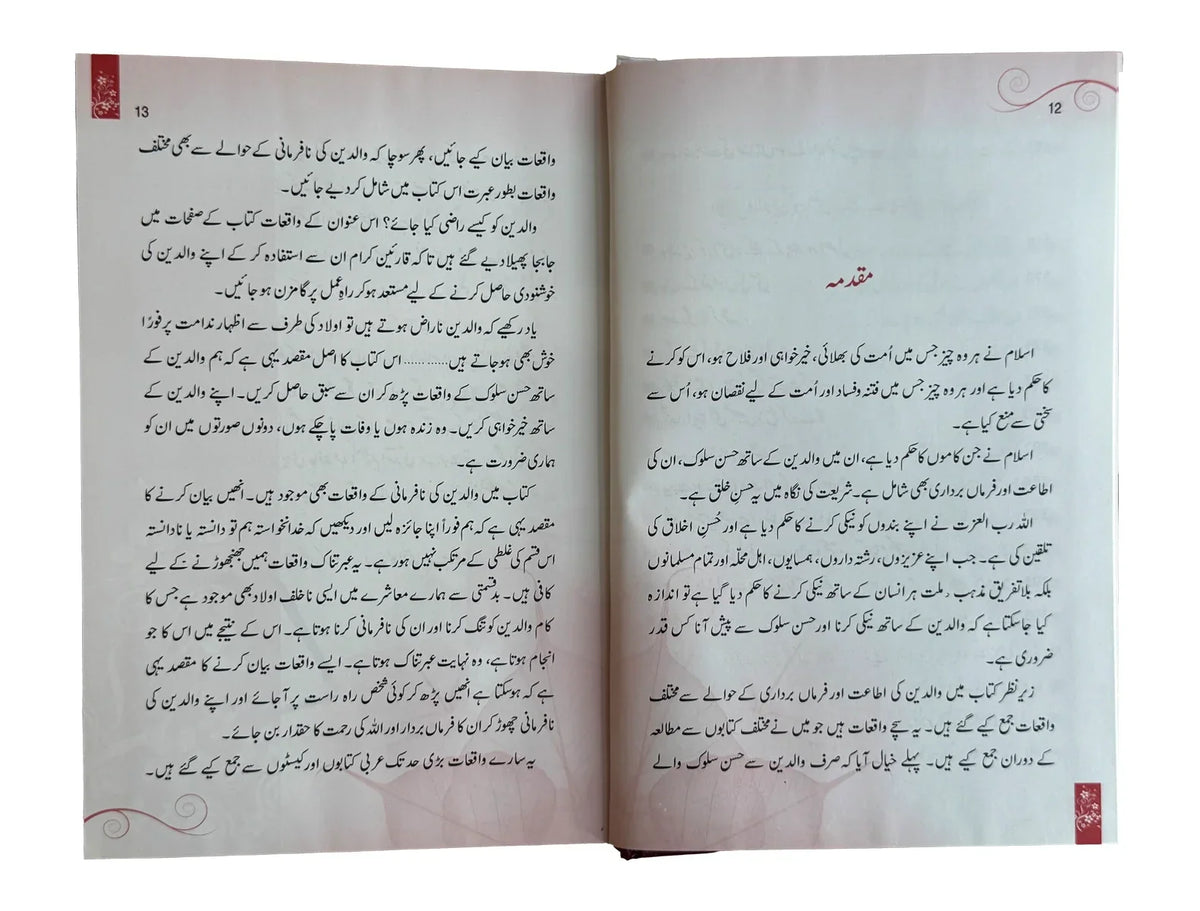 12
مقدمہ
اسلام نے ہر وہ چیز جس میں اُمت کی بھلائی، خیر خواہی اور فلاح ہو، اس کو کرنے
کا حکم دیا ہے اور ہر وہ چیز جس میں فتنہ و فساد اور اُمت کے لیے نقصان ہو، اُس سے
سختی سے منع کیا ہے۔
اسلام نے جن کاموں کا حکم دیا ہے، ان میں والدین کے ساتھ حسن سلوک، ان کی
اطاعت اور فرماں برداری بھی شامل ہے۔ شریعت کی نگاہ میں یہ حسنِ خلق ہے۔
اللہ رب العزت نے اپنے بندوں کو نیکی کرنے کا حکم دیا ہے اور حُسنِ اخلاق کی
تلقین کی ہے۔ جب اپنے عزیزوں، رشتہ داروں، ہمسایوں، اہل محلّہ اور تمام مسلمانوں
بلکہ بلا تفریق مذہب و ملت ہر انسان کے ساتھ نیکی کرنے کا حکم دیا گیا ہے تو اندازہ
کیا جا سکتا ہے کہ والدین کے ساتھ نیکی کرنا اور حسن سلوک سے پیش آنا کس قدر
ضروری ہے۔
زیرِ نظر کتاب میں والدین کی اطاعت اور فرماں برداری کے حوالے سے مختلف
واقعات جمع کیے گئے ہیں۔ یہ سچے واقعات ہیں جو میں نے مختلف کتابوں سے مطالعہ
کے دوران جمع کیے ہیں۔ پہلے خیال آیا کہ صرف والدین سے حسن سلوک والے
13
واقعات بیان کیے جائیں، پھر سوچا کہ والدین کی نافرمانی کے حوالے سے بھی مختلف
واقعات بطور عبرت اس کتاب میں شامل کر دیے جائیں۔
والدین کو کیسے راضی کیا جائے؟ اس عنوان کے واقعات کتاب کے صفحات میں
جابجا پھیلا دیے گئے ہیں تاکہ قارئین کرام ان سے استفادہ کر کے اپنے والدین کی
خوشنودی حاصل کرنے کے لیے مستعد ہو کر راہِ عمل پر گامزن ہو جائیں۔
یاد رکھیے کہ والدین ناراض ہوتے ہیں تو اولاد کی طرف سے اظہار ندامت پر فورًا
خوش بھی ہو جاتے ہیں............ اس کتاب کا اصل مقصد یہی ہے کہ ہم والدین کے
ساتھ حسن سلوک کے واقعات پڑھ کر ان سے سبق حاصل کریں۔ اپنے والدین کے
ساتھ خیر خواہی کریں۔ وہ زندہ ہوں یا وفات پا چکے ہوں، دونوں صورتوں میں ان کو
ہماری ضرورت ہے۔
کتاب میں والدین کی نافرمانی کے واقعات بھی موجود ہیں۔ انھیں بیان کرنے کا
مقصد یہی ہے کہ ہم فوراً اپنا جائزہ لیں اور دیکھیں کہ خدانخواستہ ہم تو دانستہ یا نادانستہ
اس قسم کی غلطی کے مرتکب نہیں ہو رہے۔ یہ عبرتناک واقعات ہمیں جھنجھوڑنے کے لیے
کافی ہیں۔ بدقسمتی سے ہمارے معاشرے میں ایسی ناخلف اولاد بھی موجود ہے جس کا
کام والدین کو تنگ کرنا اور ان کی نافرمانی کرنا ہوتا ہے۔ اس کے نتیجے میں اس کا جو
انجام ہوتا ہے، وہ نہایت عبرتناک ہوتا ہے۔ ایسے واقعات بیان کرنے کا مقصد یہی
ہے کہ ہو سکتا ہے انھیں پڑھ کر کوئی شخص راہ راست پر آ جائے اور اپنے والدین کی
نافرمانی چھوڑ کر ان کا فرماں بردار اور اللہ کی رحمت کا حقدار بن جائے۔
یہ سارے واقعات بڑی حد تک عربی کتابوں اور کیسٹوں سے جمع کیے گئے ہیں۔